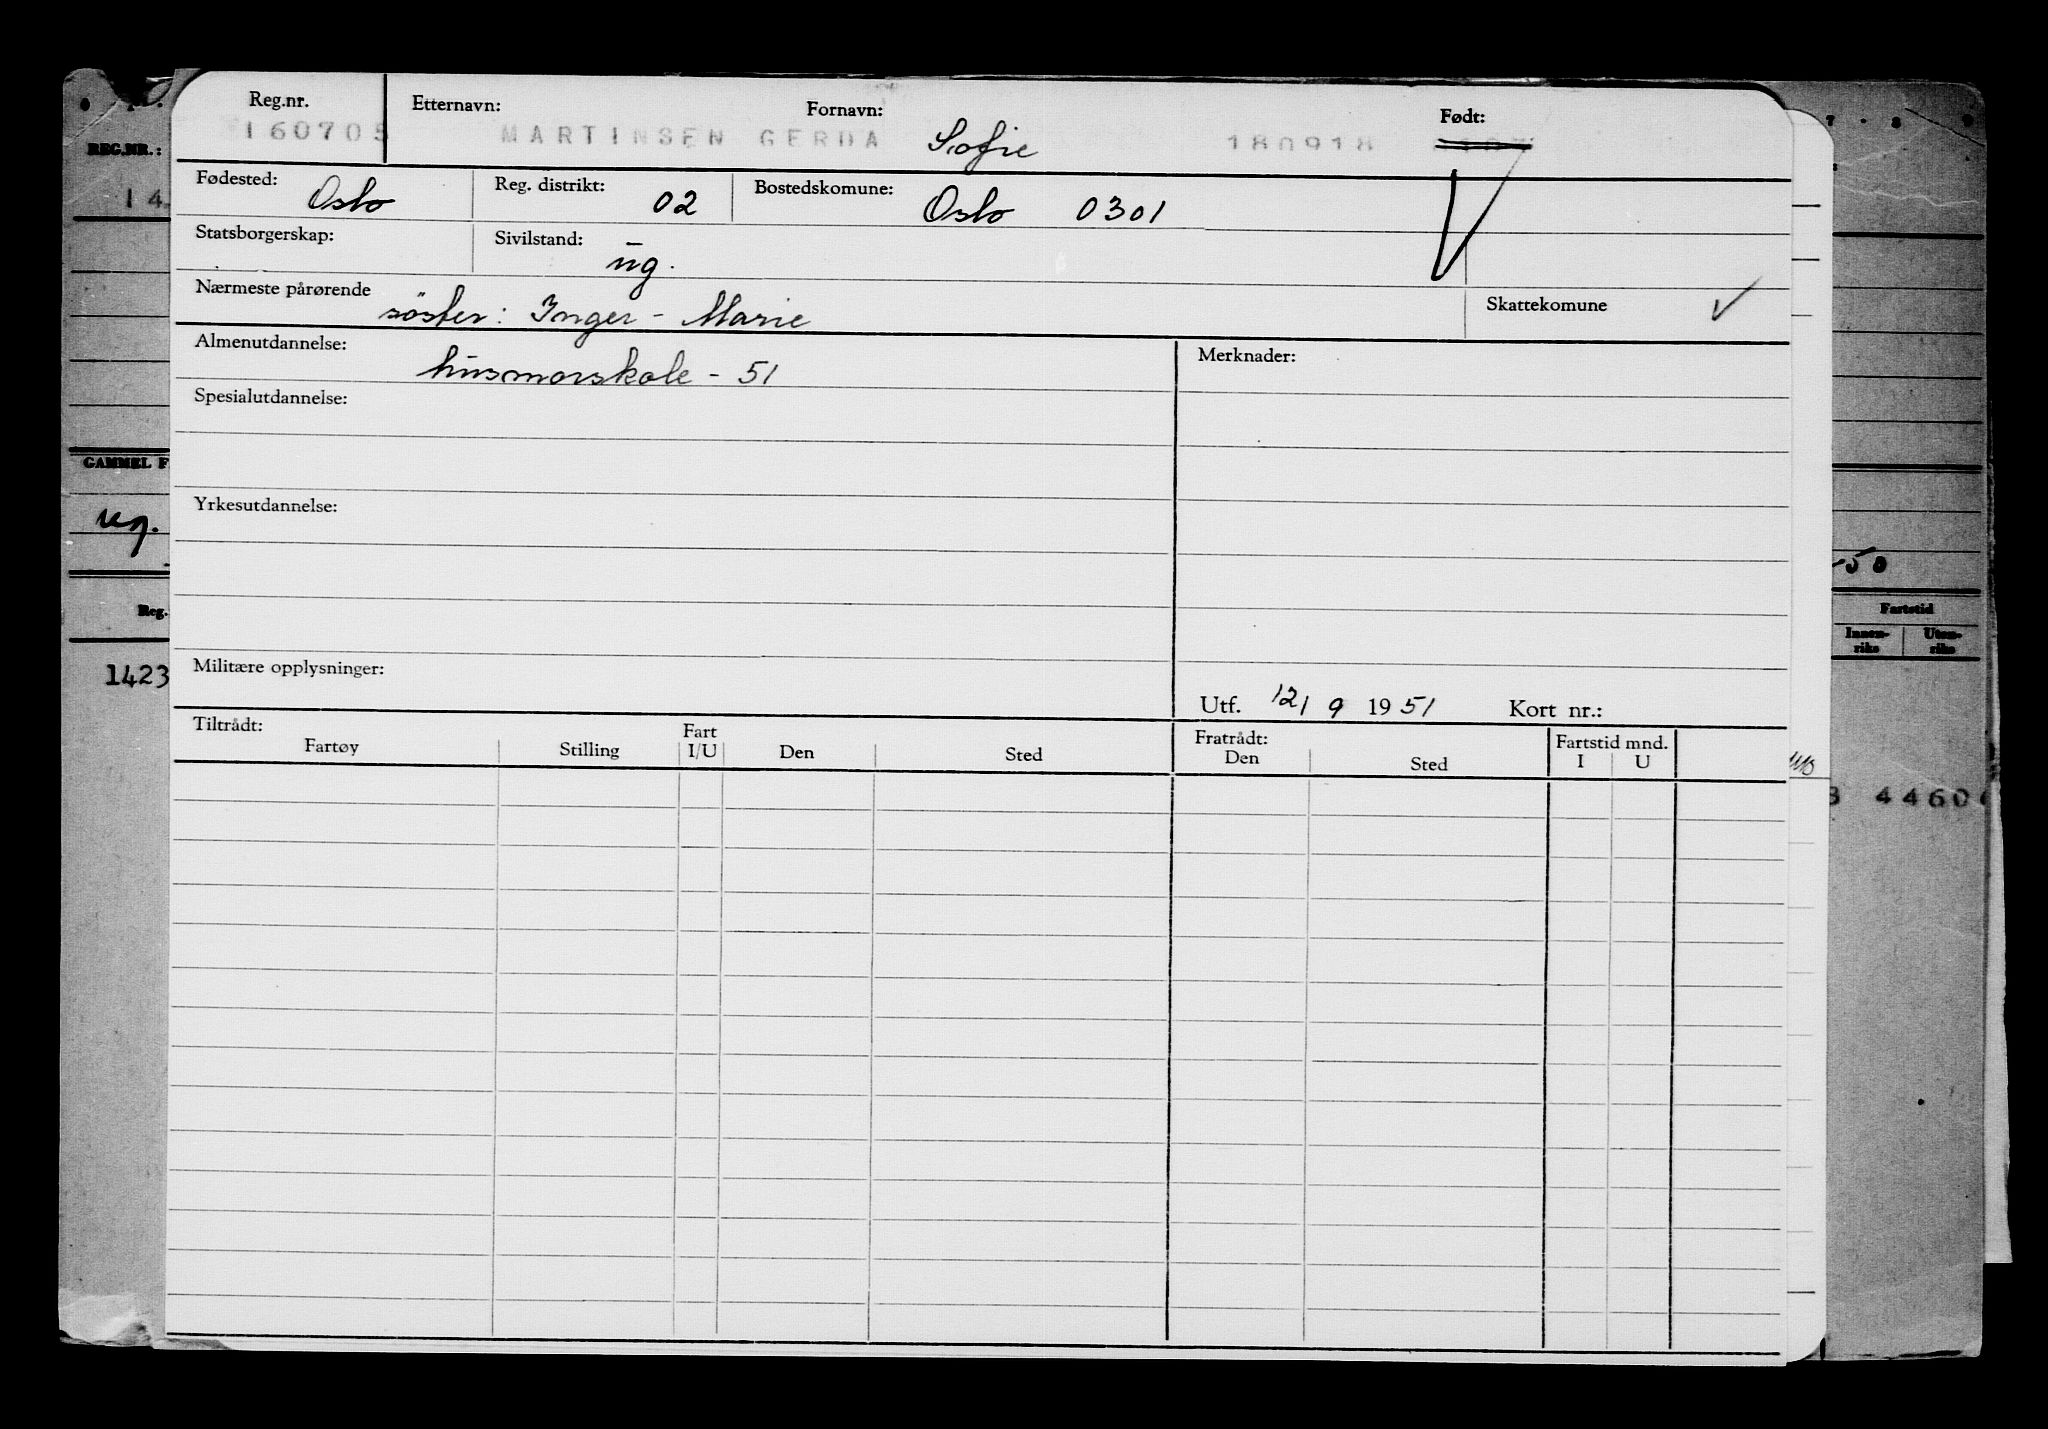 Reg.nr. Etternavn: Fornavn: Født:
160705 MARTINSEN GERDA Sofie 180918
Fødested: Oslo Reg. distrikt: 02 Bostedskomune: Oslo 0301
Statsborgerskap: Sivilstand: ug.
Nærmeste pårørende søster: Inger-Marie Skattekomune ✓
Almenutdannelse: husmorskole - 51 Merknader:
Spesialutdannelse:
Yrkesutdannelse:
Militære opplysninger:
Utf. 12/9 1951 Kort nr.:
Tiltrådt: Fratrådt: Fartstid mnd.
Fartøy Stilling Fart I/U Den Sted Den Sted I U
REG.NR.:
14
GAMMEL F
ug.
Reg.
1423
7 . 8 9
-50
Fartstid
Innen-riks Uten-riks
44606